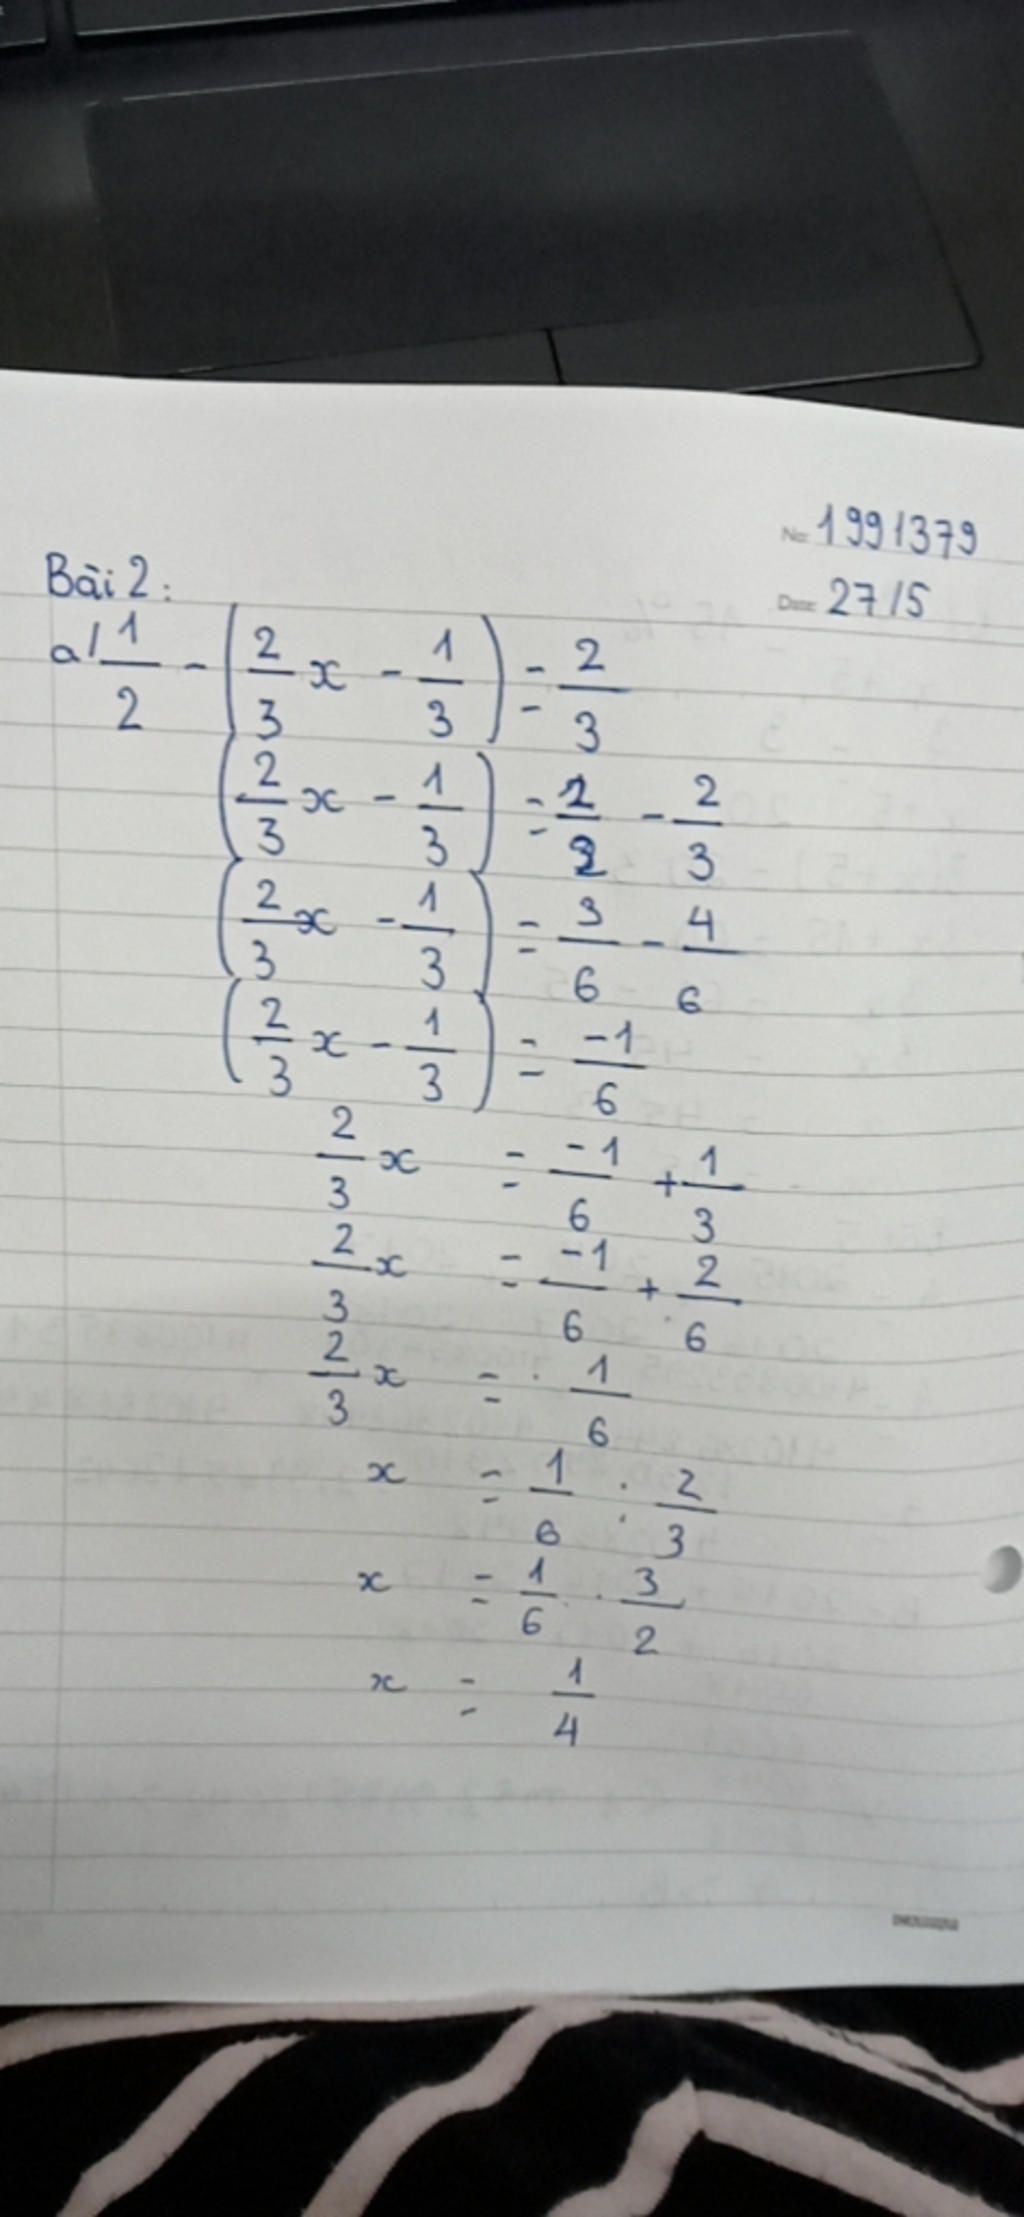 No: 1991379
Date: 27/5
Bài 2:
a/ 1/2 - (2/3 x - 1/3) = 2/3
(2/3 x - 1/3) = 1/2 - 2/3
(2/3 x - 1/3) = 3/6 - 4/6
(2/3 x - 1/3) = -1/6
2/3 x = -1/6 + 1/3
2/3 x = -1/6 + 2/6
2/3 x = 1/6
x = 1/6 : 2/3
x = 1/6 . 3/2
x = 1/4